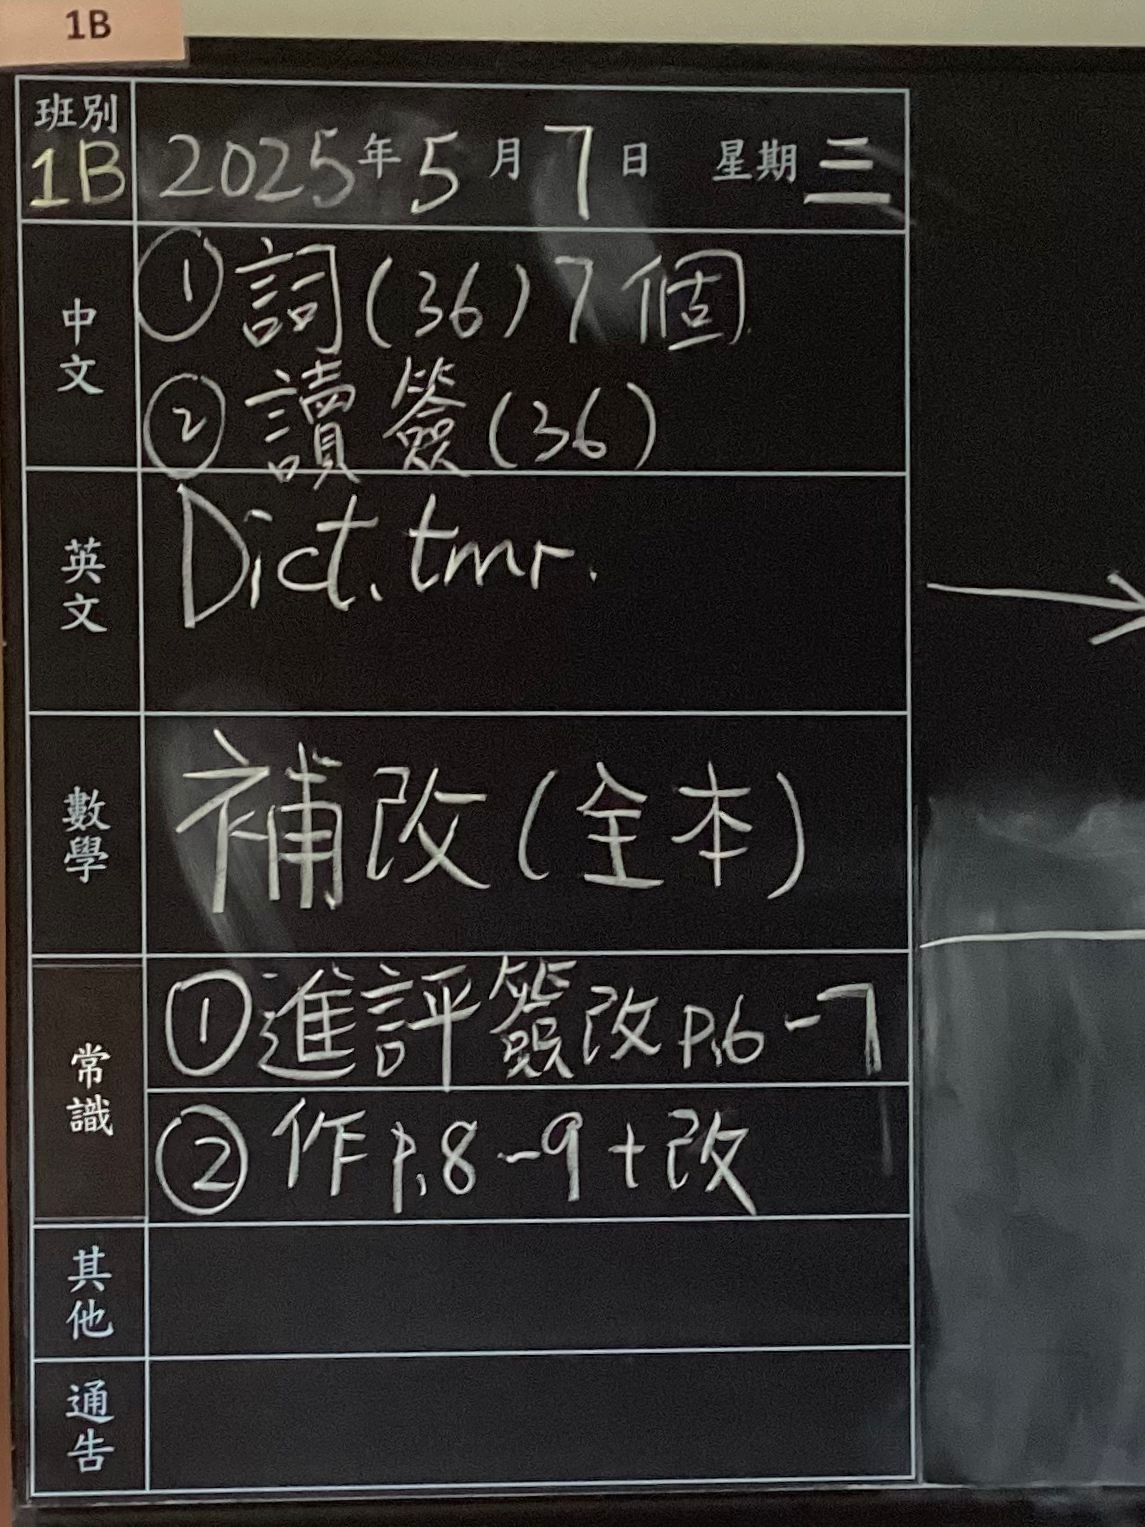 1B
班別 1B 2025年5月7日 星期三
中文
①詞(36)7個
②讀簽(36)
英文
Dict. tmr.
數學
補改(全本)
常識
①進評簽改P.6-7
②作P.8-9+改
其他
通告